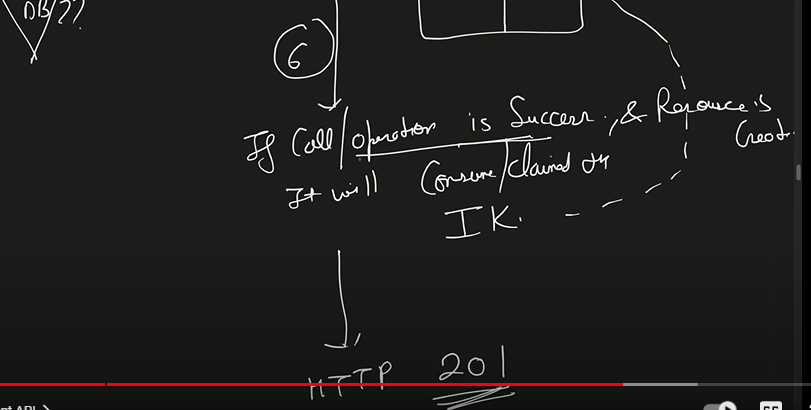 DB/??
6
If Call/operation is Success, & Resource is Creat.
It will Consume/claimed the
IK.
HTTP 201